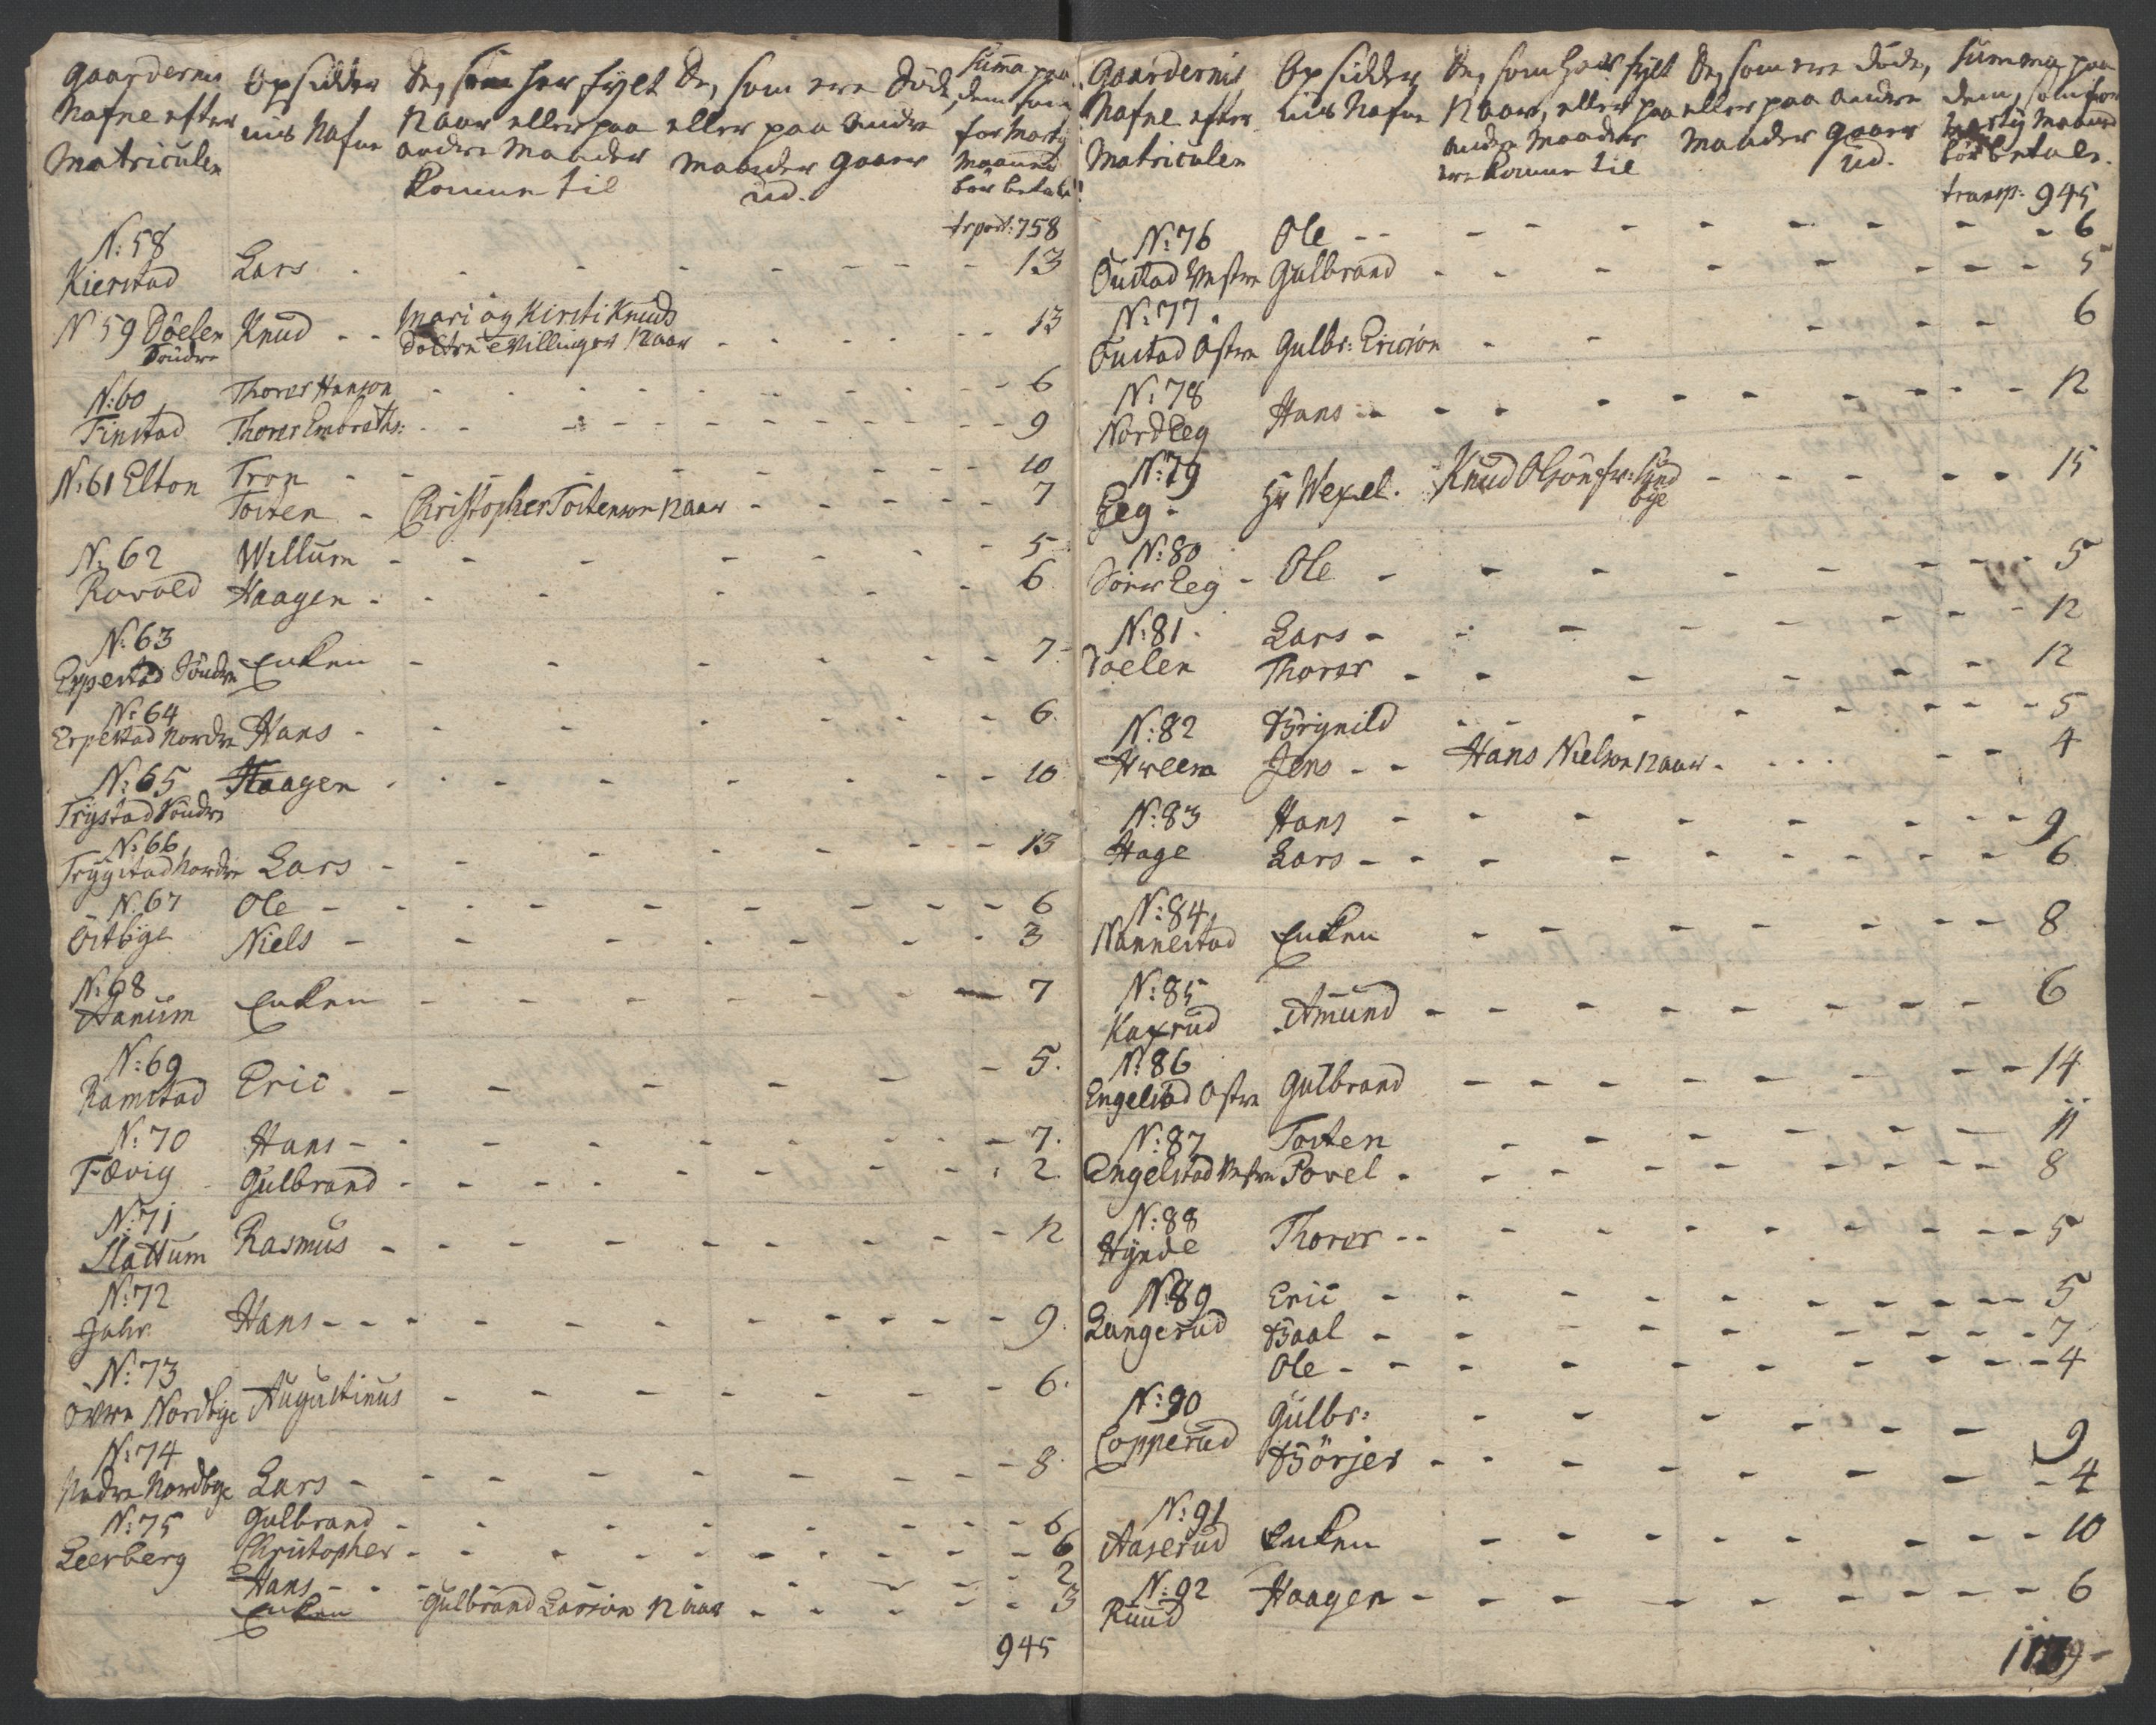 Gaardernis Nafne efter Matriculen
Opsidder nis Nafne
De, som har fylt 12 aar eller paa andre Maader komne til
De, som ere döde, eller paa andre Maader gaaer ud.
Summa paa dem som for Martij Maaned bör betale
trport: 758
N: 58 Kierstad Lars - - - 13
N 59 Döelen Söndre Knud - - Mari og Kirsti Knuds Döttre tvillinger 12 aar - - - 13
N: 60 Finstad Thorer Hanson - - - 6
Thorer Embreths: - - - 9
N: 61 Elton Tron - - - 10
Tosten - Christopher Tostenson 12 aar - - - 7
N: 62 Rovold Willum - - - 5
Haagen - - - 6
N: 63 Erpestad Söndre Enken - - - 7
N: 64 Erpestad Nordre Hans - - - 6
N: 65 Trygstad Söndre Haagen - - - 10
N: 66 Trygstad Nordre Lars - - - 13
N. 67 Östbye Ole - - - 6
Niels - - - 3
N: 68 Hanum Enken - - - 7
N: 69 Ramstad Eric - - - 5.
N: 70 Fævig Hans - - - 7.
Gulbrand - - - 2
N: 71 Slattum Rasmus - - - 12
N: 72 Jahr Hans - - - 9.
N: 73 Övre Nordbye Augustinus - - - 6.
N: 74 Nedre Nordbye Lars - - - 8.
N: 75 Leerberg Gulbrand - - - 6
Christopher - - - 6
Hans - - - 2
Enken Gulbrand Larson 12 aar - - - 3
945
Gaardernis Nafne efter Matriculen
Opsidder nis Nafne
De, som haar fylt 12 aar, eller paa anden Maader ere komne til
De, som ere döde, eller paa andre Maader gaaer ud.
Summa paa dem, som for Martij Maaned bör betale.
transp: 945
N: 76 Öustad Vestre Ole - - - 6
Gulbrand - - - 5
N: 77. Öustad Östre Gulbr: Ericson - - - 6
N: 78 Nord Eeg Hans - - - 12
N: 79 Eeg - Hr Wexel. Knud Olsön fr: Sundbye - - - 15
N: 80 Sörer Eeg - Ole - - - 5
N: 81. Döelen Lars - - - 12
Thorer - - - 12
N: 82 Hveem Brynild - - - 5
Jens - - Hans Nielson 12 aar - - - 4
N: 83 Hage Hans - - - 9
Lars - - - 6
N: 84 Nannestad Enken - - - 8
N: 85 Kaxrud Amund - - - 6
N: 86 Engelstad Östre Gulbrand - - - 14
N: 87 Engelstad Vestre Tosten - - - 11
Povel - - - 8
N: 88 Hynde Thorer - - - 5
N: 89 Langerud Eric - - - 5
Baal - - - 7
Ole - - - 4
N: 90 Copperud Gulbr: - - - 9
Börjer - - - 4
N: 91 Aaserud Enken - - - 10
N: 92 Ruud Haagen - - - 6